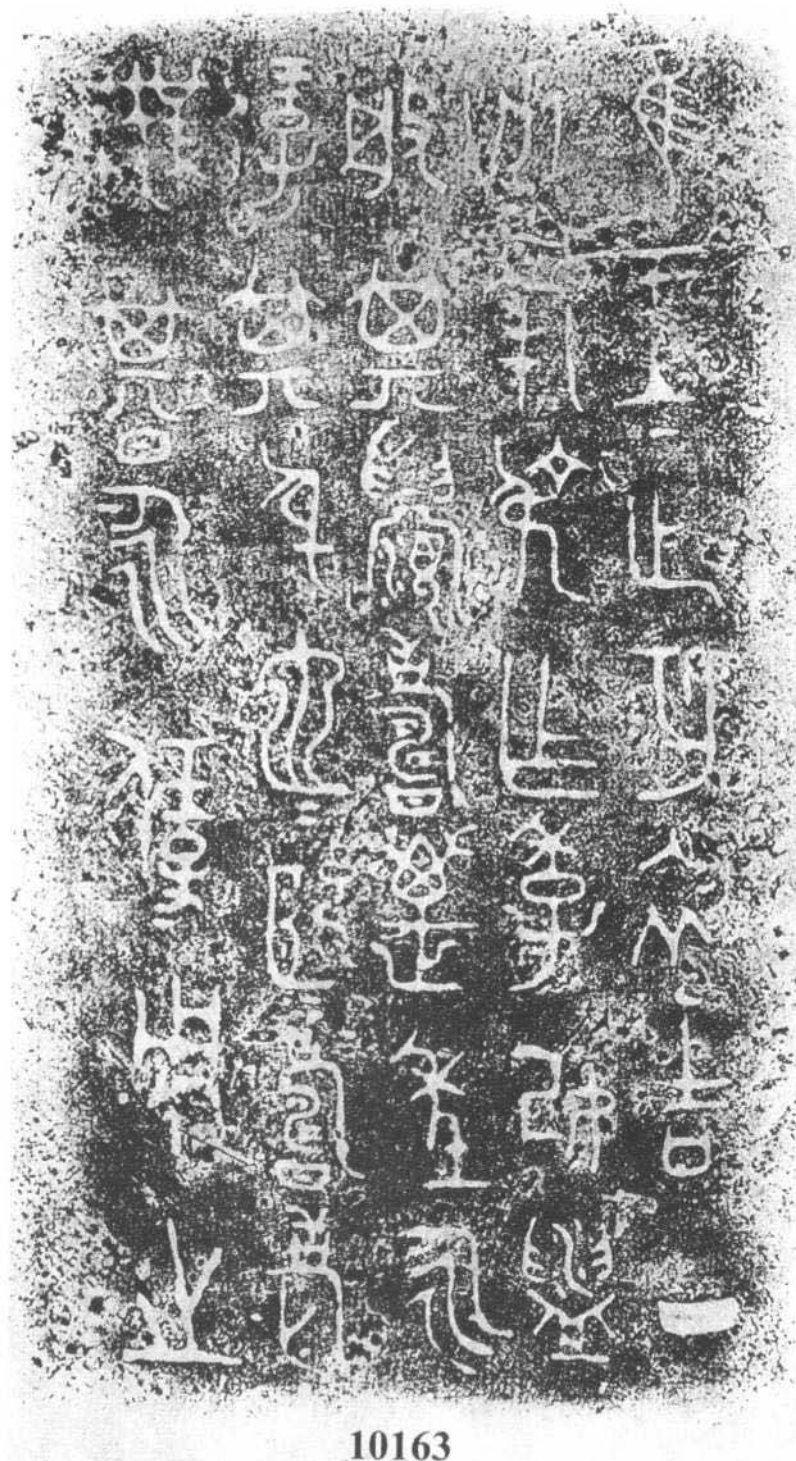 隹王正月初吉丁
亥夆弔乍季妃盥
般其眉壽萬年永
保其身它=巸=壽老
無期永保用之
10163